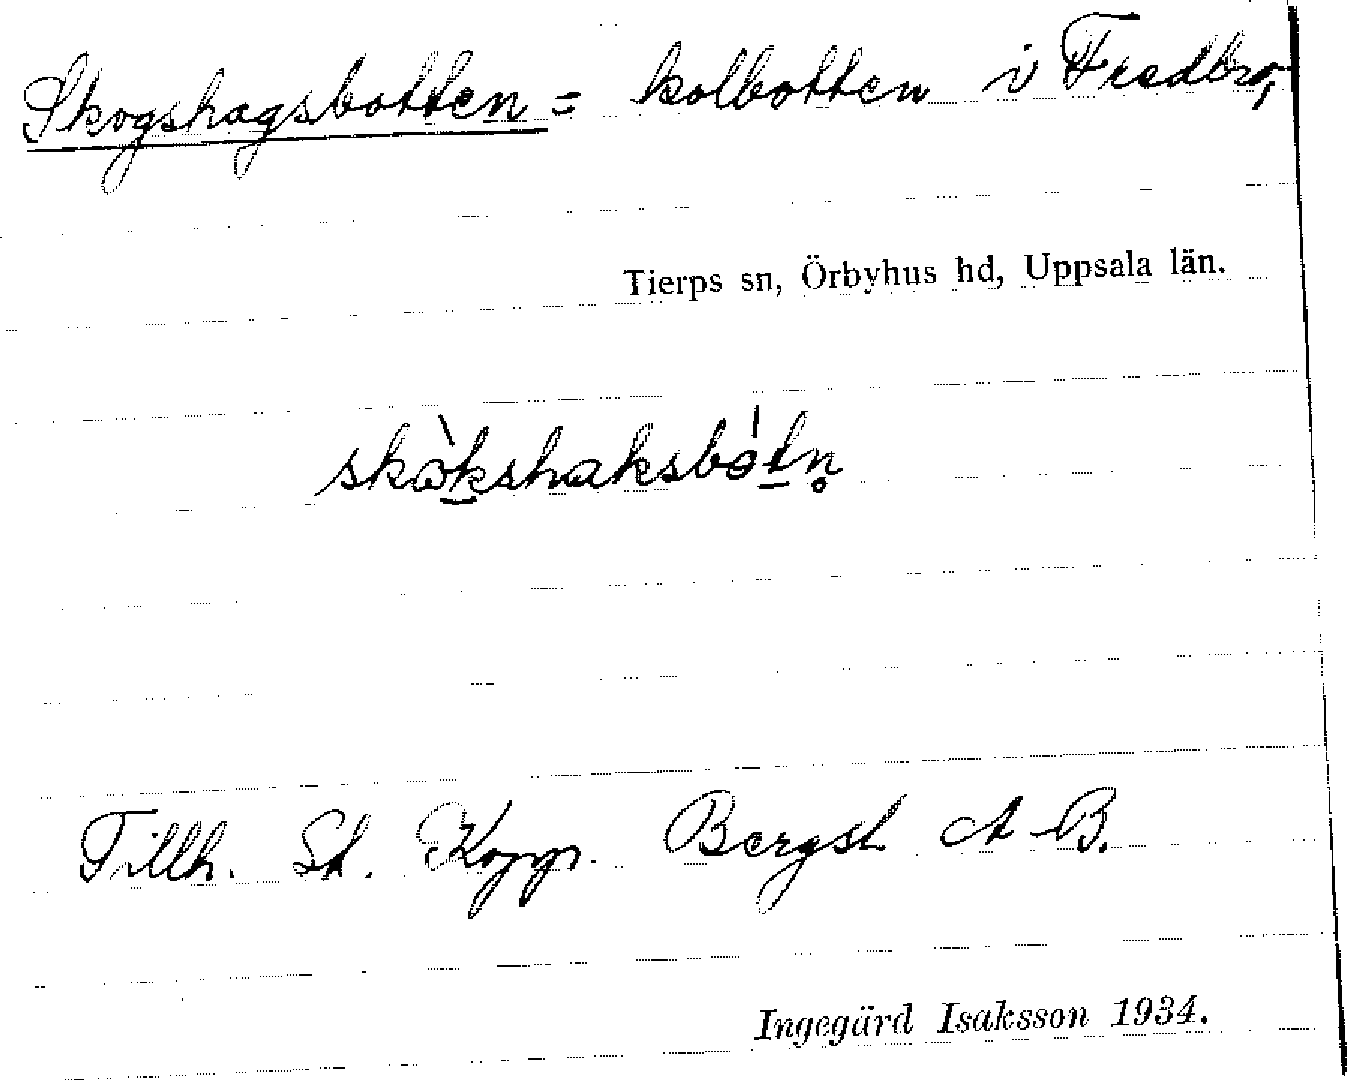 Skogshagsbotten = kolbotten i Fredbro,
Tierps sn, Örbyhus hd, Uppsala län.
skòkshaksbótn̥
Tillh. St. Kopp. Bergsl A-B.
Ingegärd Isaksson 1934.